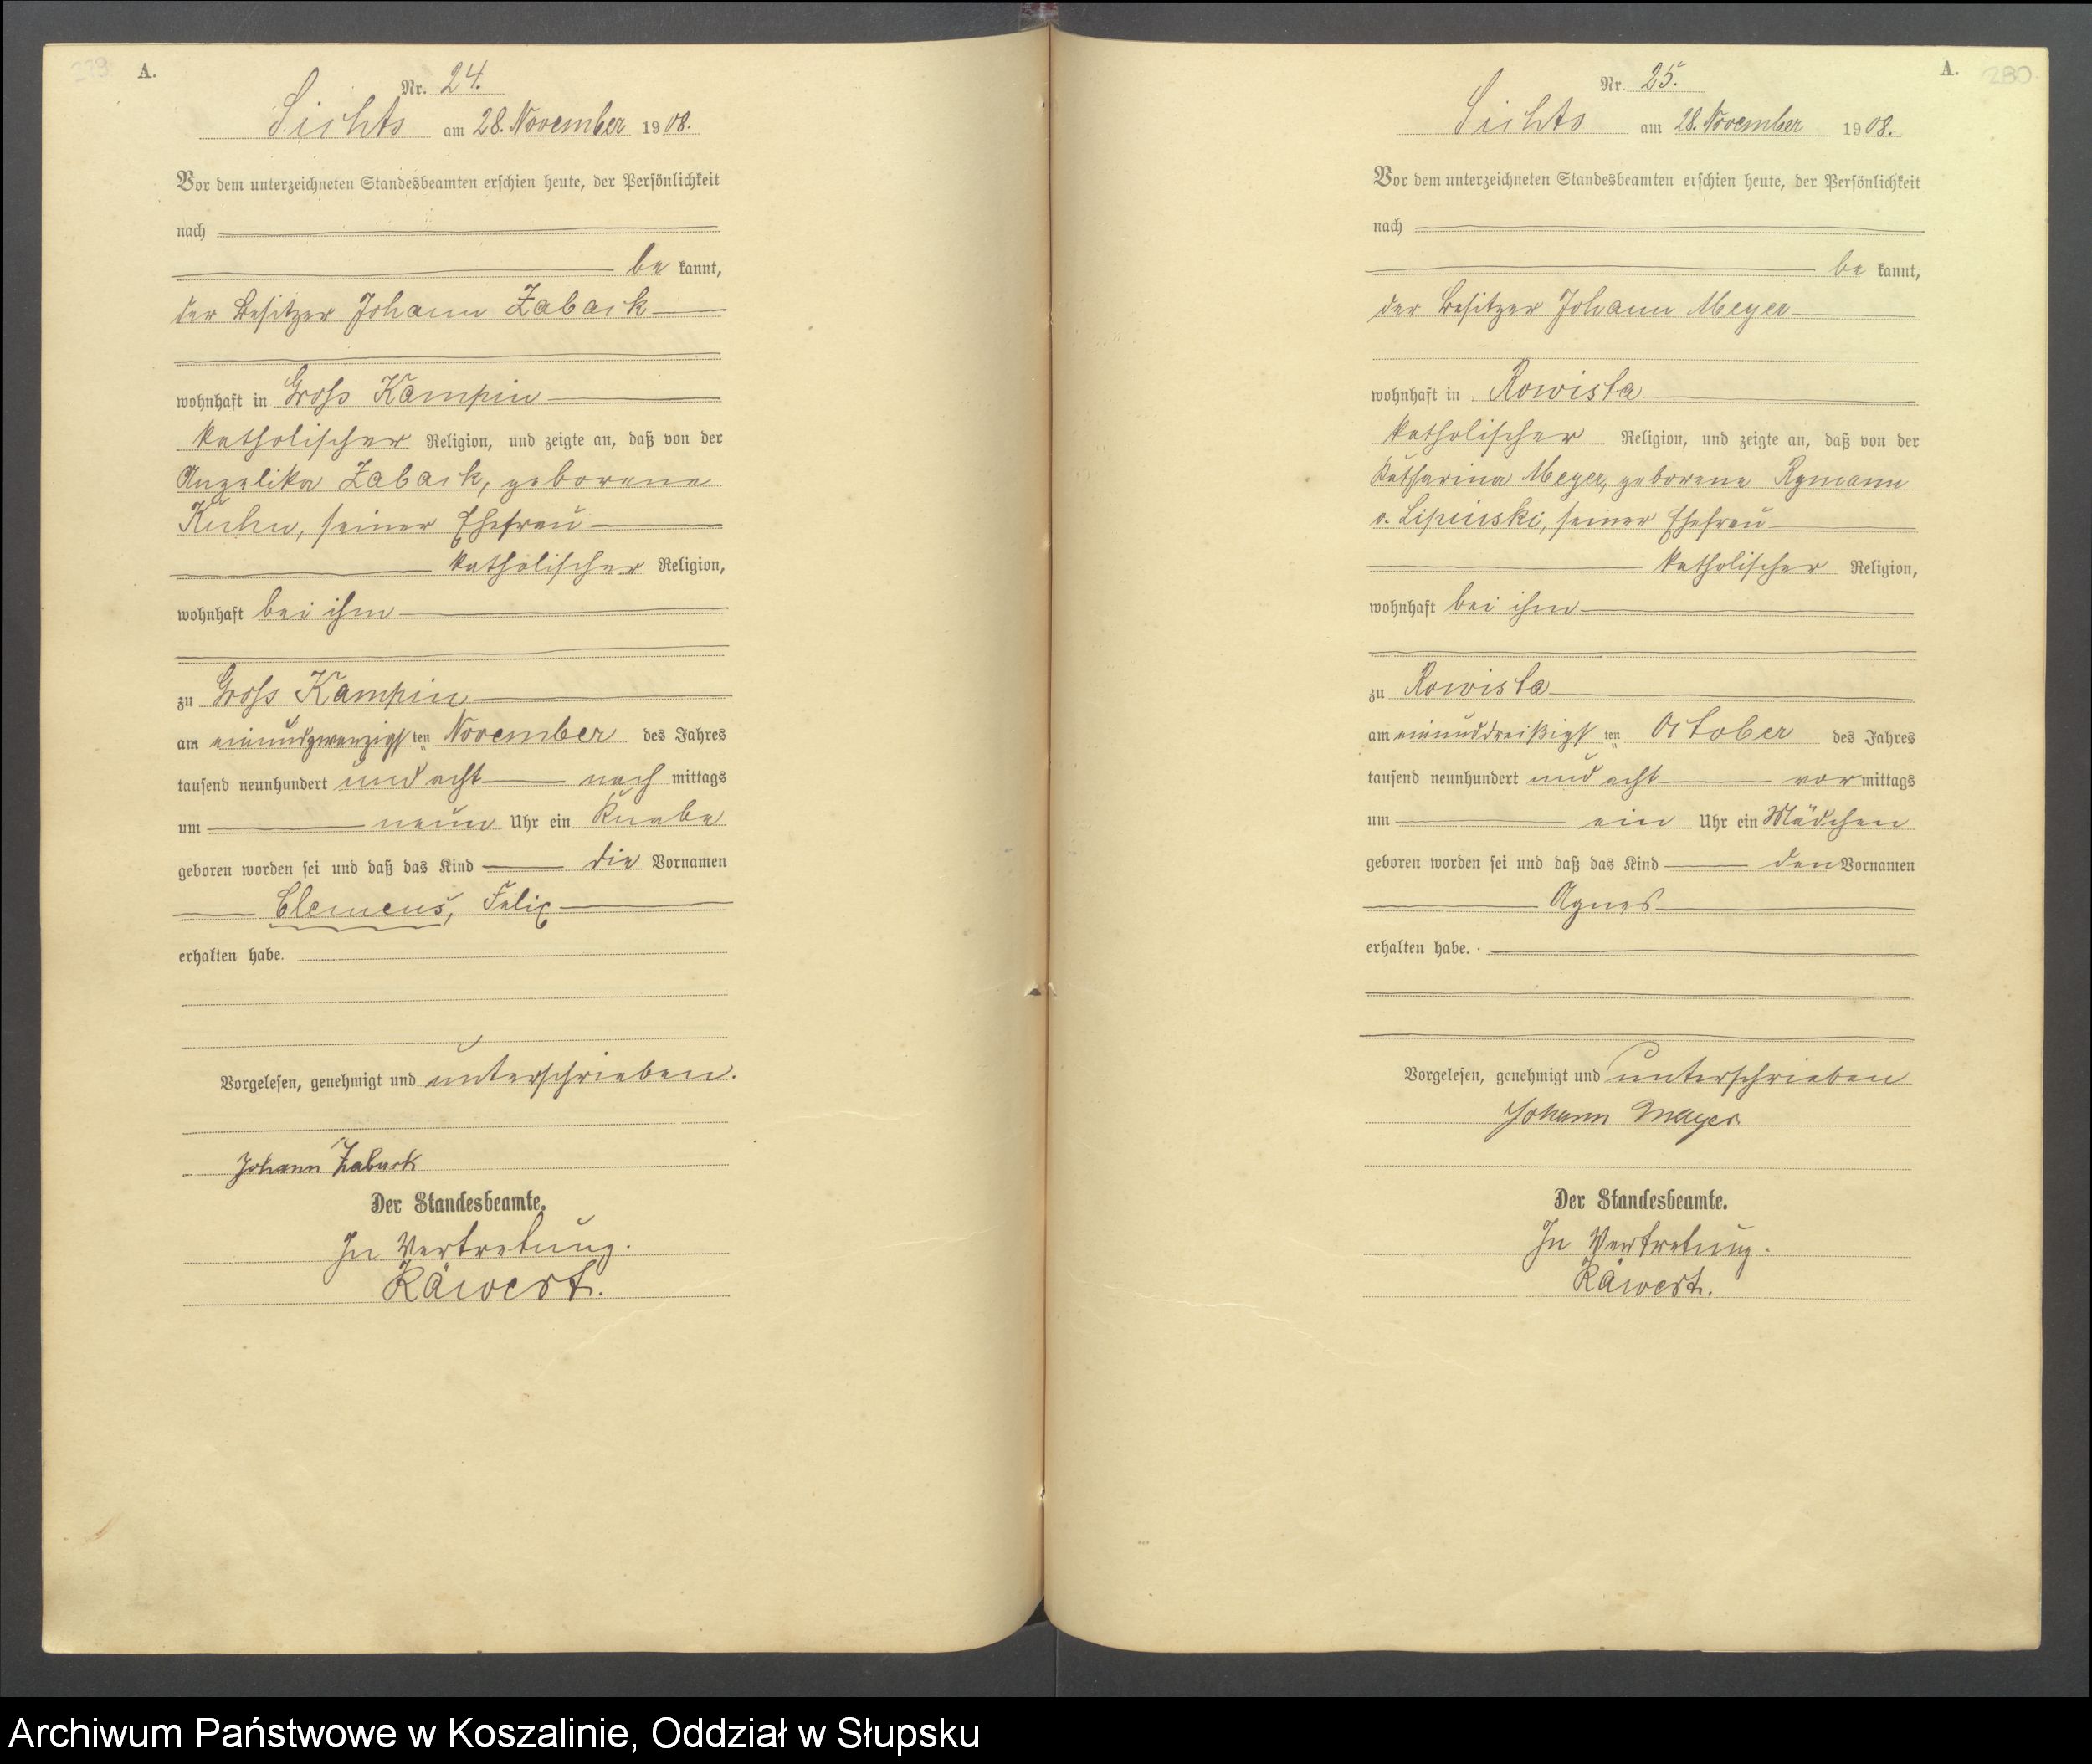 279
A.
Nr. 24.
Sichts am 28. November 1908.
Vor dem unterzeichneten Standesbeamten erschien heute, der Persönlichkeit
nach
be kannt,
der Besitzer Johann Zaback
wohnhaft in Gross Kampin
katholischer Religion, und zeigte an, daß von der
Angelika Zaback, geborene
Kuhn, seiner Ehefrau
katholischer Religion,
wohnhaft bei ihm
zu Gross Kampin
am einundzwanzigsten November des Jahres
tausend neunhundert und acht nach mittags
um neun Uhr ein Knabe
geboren worden sei und daß das Kind die Vornamen
Clemens, Felix
erhalten habe.
Vorgelesen, genehmigt und unterschrieben.
Johann Zaback
Der Standesbeamte.
In Vertretung.
Räwert.
A.
280.
Nr. 25.
Sichts am 28. November 1908.
Vor dem unterzeichneten Standesbeamten erschien heute, der Persönlichkeit
nach
be kannt,
der Besitzer Johann Meyer
wohnhaft in Rowista
katholischer Religion, und zeigte an, daß von der
Katharina Meyer, geborene Rymann
v. Lipinski, seiner Ehefrau
katholischer Religion,
wohnhaft bei ihm
zu Rowista
am einunddreißigsten October des Jahres
tausend neunhundert und acht vormittags
um ein Uhr ein Mädchen
geboren worden sei und daß das Kind den Vornamen
Agnes
erhalten habe.
Vorgelesen, genehmigt und unterschrieben
Johann Mayer
Der Standesbeamte.
In Vertretung.
Räwert.
Archiwum Państwowe w Koszalinie, Oddział w Słupsku